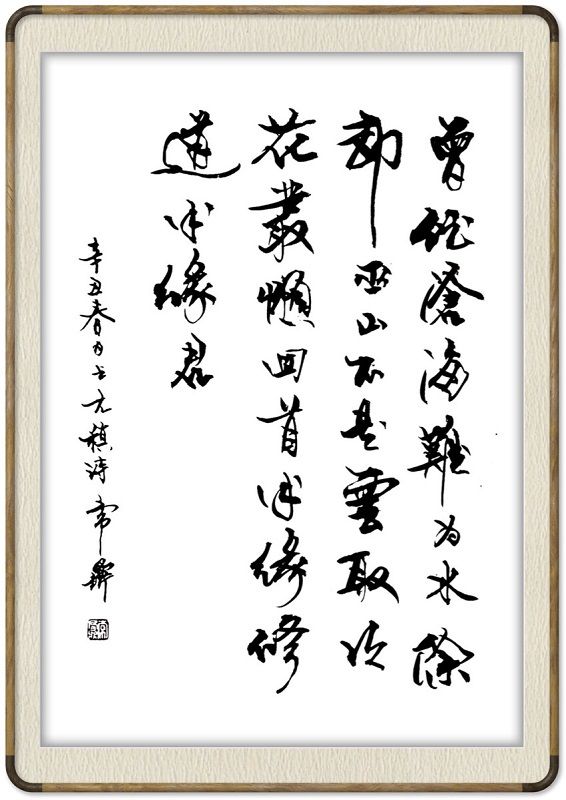 曾经滄海難为水除
却巫山不是雲取次
花叢懶回首半缘修
道半缘君
辛丑春月书元稹诗 常